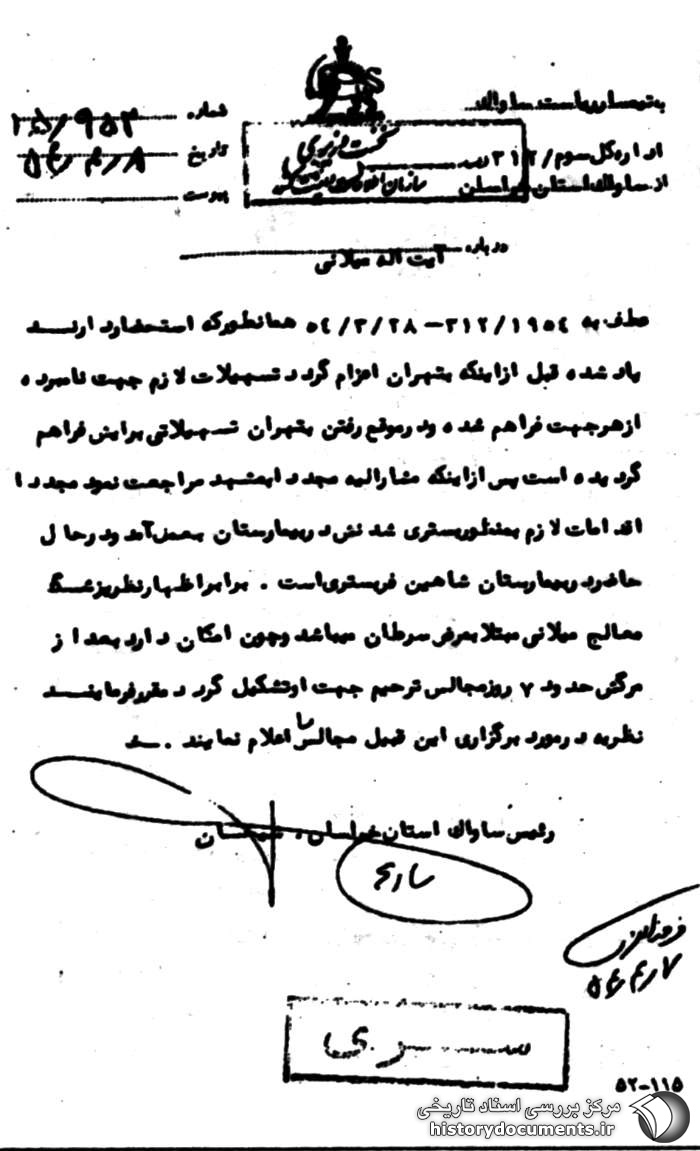 به تیمسار ریاست ساواک
شماره ۲۵/۹۵۳
نخست وزیری
اداره کل سوم/۳۱۲
تاریخ ۵۴/۴/۸
سازمان اطلاعات و امنیت کشور
از ساواک استان خراسان
پیوست
درباره آیت اله میلانی
عطف به ۳۱۲/۱۹۵۴–۵۴/۳/۲۸ همانطورکه استحضار دارند
یاد شده قبل از اینکه بتهران اعزام گردد تسهیلات لازم جهت نامبرده
از هر جهت فراهم شده و در موقع رفتن بتهران تسهیلاتی برایش فراهم
گردیده است پس از اینکه مشارالیه مجددا بمشهد مراجعت نمود مجددا
اقدامات لازم بمنظور بستری شدنش در بیمارستان بعمل آمد و در حال
حاضر در بیمارستان شاهین فر بستری است . برابر اظهار نظر پزشگ
معالج میلانی مبتلا بمرض سرطان میباشد و چون امکان دارد بعد از
مرگش حدود ۷ روز مجالس ترحیم جهت او تشکیل گردد مقرر فرمایند
نظریه در مورد برگزاری این قبیل مجالس را اعلام نمایند .
رئیس ساواک استان خراسان .
۵۴/۴/۷
سری
۵۲-۱۱۵
مرکز بررسی اسناد تاریخی
historydocuments.ir